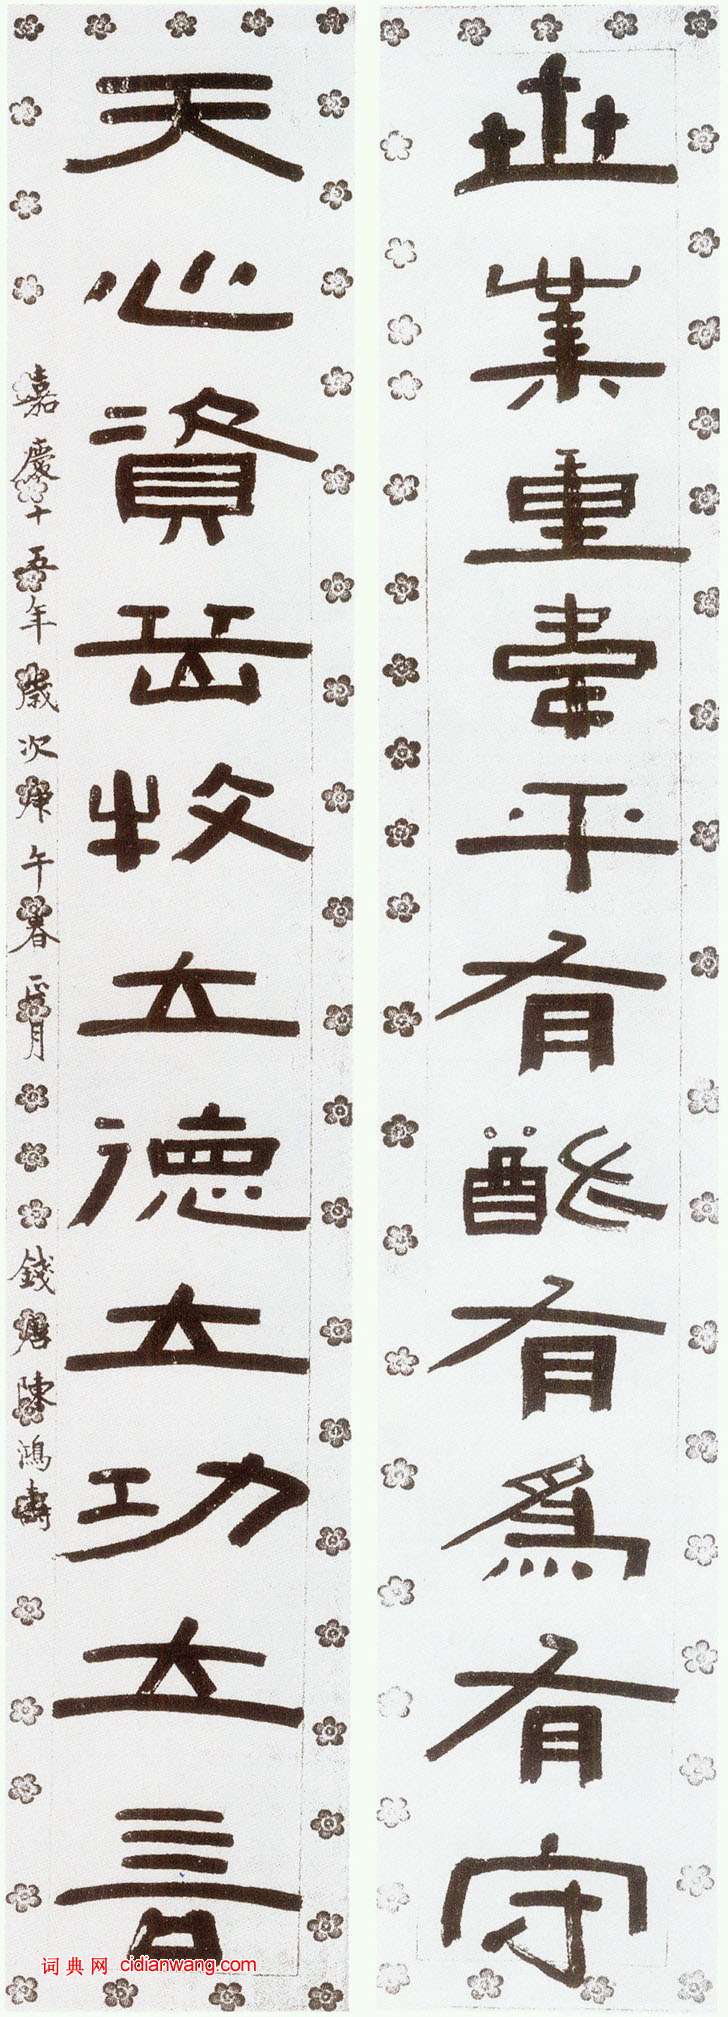 世業重韋平有猷有為有守
天心資岳牧立德立功立言
嘉慶十五年歲次庚午春正月 錢唐陳鴻壽
词典网 cidianwang.com